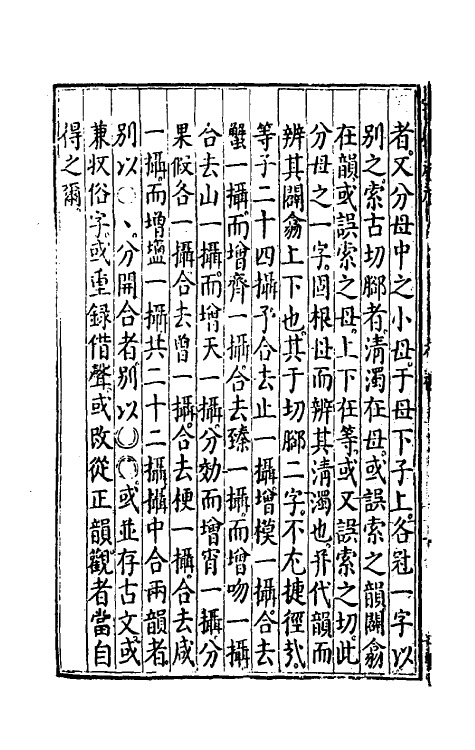 者又分母中之小母于母下子上各冠一字以
別之索古切腳者清濁在母或誤索之韻闢翕
在韻或誤索之母上下在等或又誤索之切此
分母之一字固根母而辨其清濁也并代韻而
辨其闢翕上下也其于切腳二字不尤捷徑哉
等子二十四攝予合去止一攝增模一攝合去
蟹一攝而增齊一攝合去臻一攝而增吻一攝
合去山一攝而增天一攝分効而增宵一攝分
果假各一攝合去曾一攝合去梗一攝合去咸
一攝而增鹽一攝共二十二攝攝中合兩韻者
別以〇、分開合者別以〇〇或並存古文或
兼收俗字或重録借聲或改從正韻觀者當自
得之爾